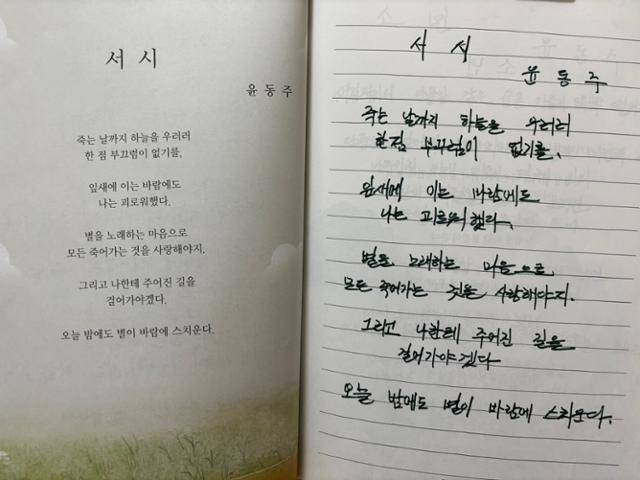 서 시
윤 동 주
죽는 날까지 하늘을 우러러
한 점 부끄럼이 없기를,
잎새에 이는 바람에도
나는 괴로워했다.
별을 노래하는 마음으로
모든 죽어가는 것을 사랑해야지.
그리고 나한테 주어진 길을
걸어가야겠다.
오늘 밤에도 별이 바람에 스치운다.
서 시
윤 동 주
죽는 날까지 하늘을 우러러
한점 부끄럼이 없기를,
잎새에 이는 바람에도
나는 괴로워했다.
별을 노래하는 마음으로
모든 죽어가는 것을 사랑해야지.
그리고 나한테 주어진 길을
걸어가야겠다
오늘 밤에도 별이 바람에 스치운다.